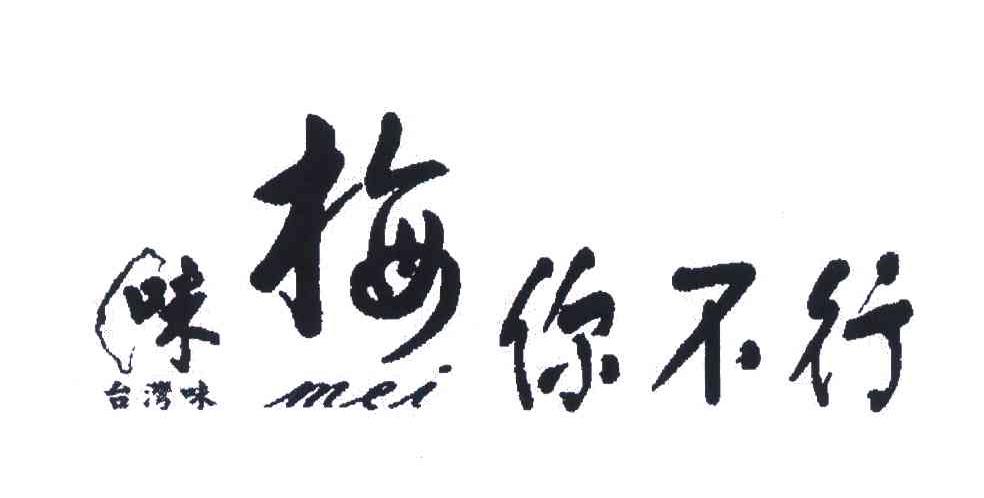 味
台灣味
梅你不行
mei